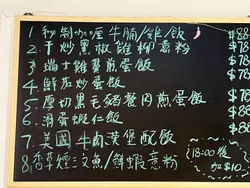 1. 秘制咖喱牛腩/雞/飯 $88
2. 干炒黑椒雞柳意粉 $78
3. 瑞士雞翼煎蛋飯 $78
4. 鮮茄炒蛋飯 $7
5. 厚切黑毛豬餐肉煎蛋飯 $7
6. 滑蛋蝦仁飯 $78
7. 美國牛肉漢堡配飯
8. 香草燴三文魚/鮮蝦意粉
18:00後
加$10